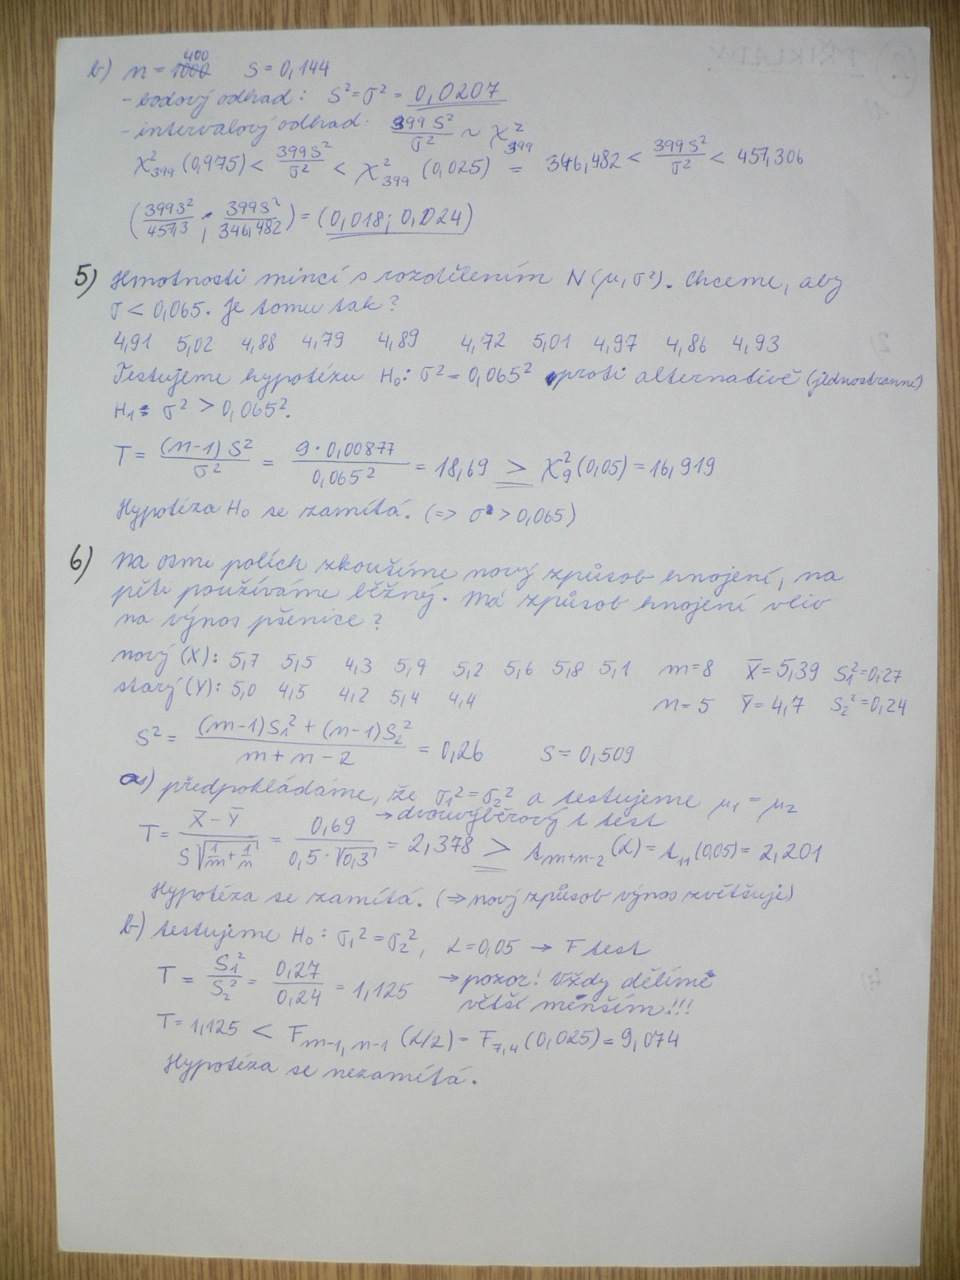 b) n = 400 S = 0,144
- bodový odhad: S² = σ² = 0,0207
- intervalový odhad: 399 S²/σ² ~ χ²₃₉₉
χ²₃₉₉ (0,975) < 399 S²/σ² < χ²₃₉₉ (0,025) = 346,482 < 399 S²/σ² < 457,306
(399 S²/457,3 ; 399 S²/346,482) = (0,018 ; 0,024)
5) Hmotnosti mincí s rozdělením N(μ, σ²). Chceme, aby
σ < 0,065. Je tomu tak?
4,91 5,02 4,88 4,79 4,89 4,72 5,01 4,97 4,86 4,93
Testujeme hypotézu H₀: σ² = 0,065² proti alternativě (jednostranné)
H₁: σ² > 0,065².
T = (n-1) S²/σ² = 9 · 0,00877/0,065² = 18,69 ≥ χ²₉ (0,05) = 16,919
Hypotéza H₀ se zamítá. (=> σ > 0,065)
6) Na osmi polích zkoušíme nový způsob hnojení, na
pěti používáme běžný. Má způsob hnojení vliv
na výnos pšenice?
nový (X): 5,7 5,5 4,3 5,9 5,2 5,6 5,8 5,1 m = 8 X̄ = 5,39 S₁² = 0,27
starý (Y): 5,0 4,5 4,2 5,4 4,4 n = 5 Ȳ = 4,7 S₂² = 0,24
S² = (m-1)S₁² + (n-1)S₂²/m + n - 2 = 0,26 S = 0,509
a) předpokládáme, že σ₁² = σ₂² a testujeme μ₁ = μ₂
→ dvouvýběrový t test
T = X̄ - Ȳ/S √(1/m + 1/n) = 0,69/0,5 · √0,3 = 2,378 ≥ t_{m+n-2} (α) = t₁₁ (0,05) = 2,201
Hypotéza se zamítá. (⇒ nový způsob výnos zvětšuje)
b) testujeme H₀: σ₁² = σ₂², α = 0,05 → F test
T = S₁²/S₂² = 0,27/0,24 = 1,125 → pozor! Vždy dělíme
větší menším!!!
T = 1,125 < F_{m-1, n-1} (α/2) = F₇,₄ (0,025) = 9,074
Hypotéza se nezamítá.